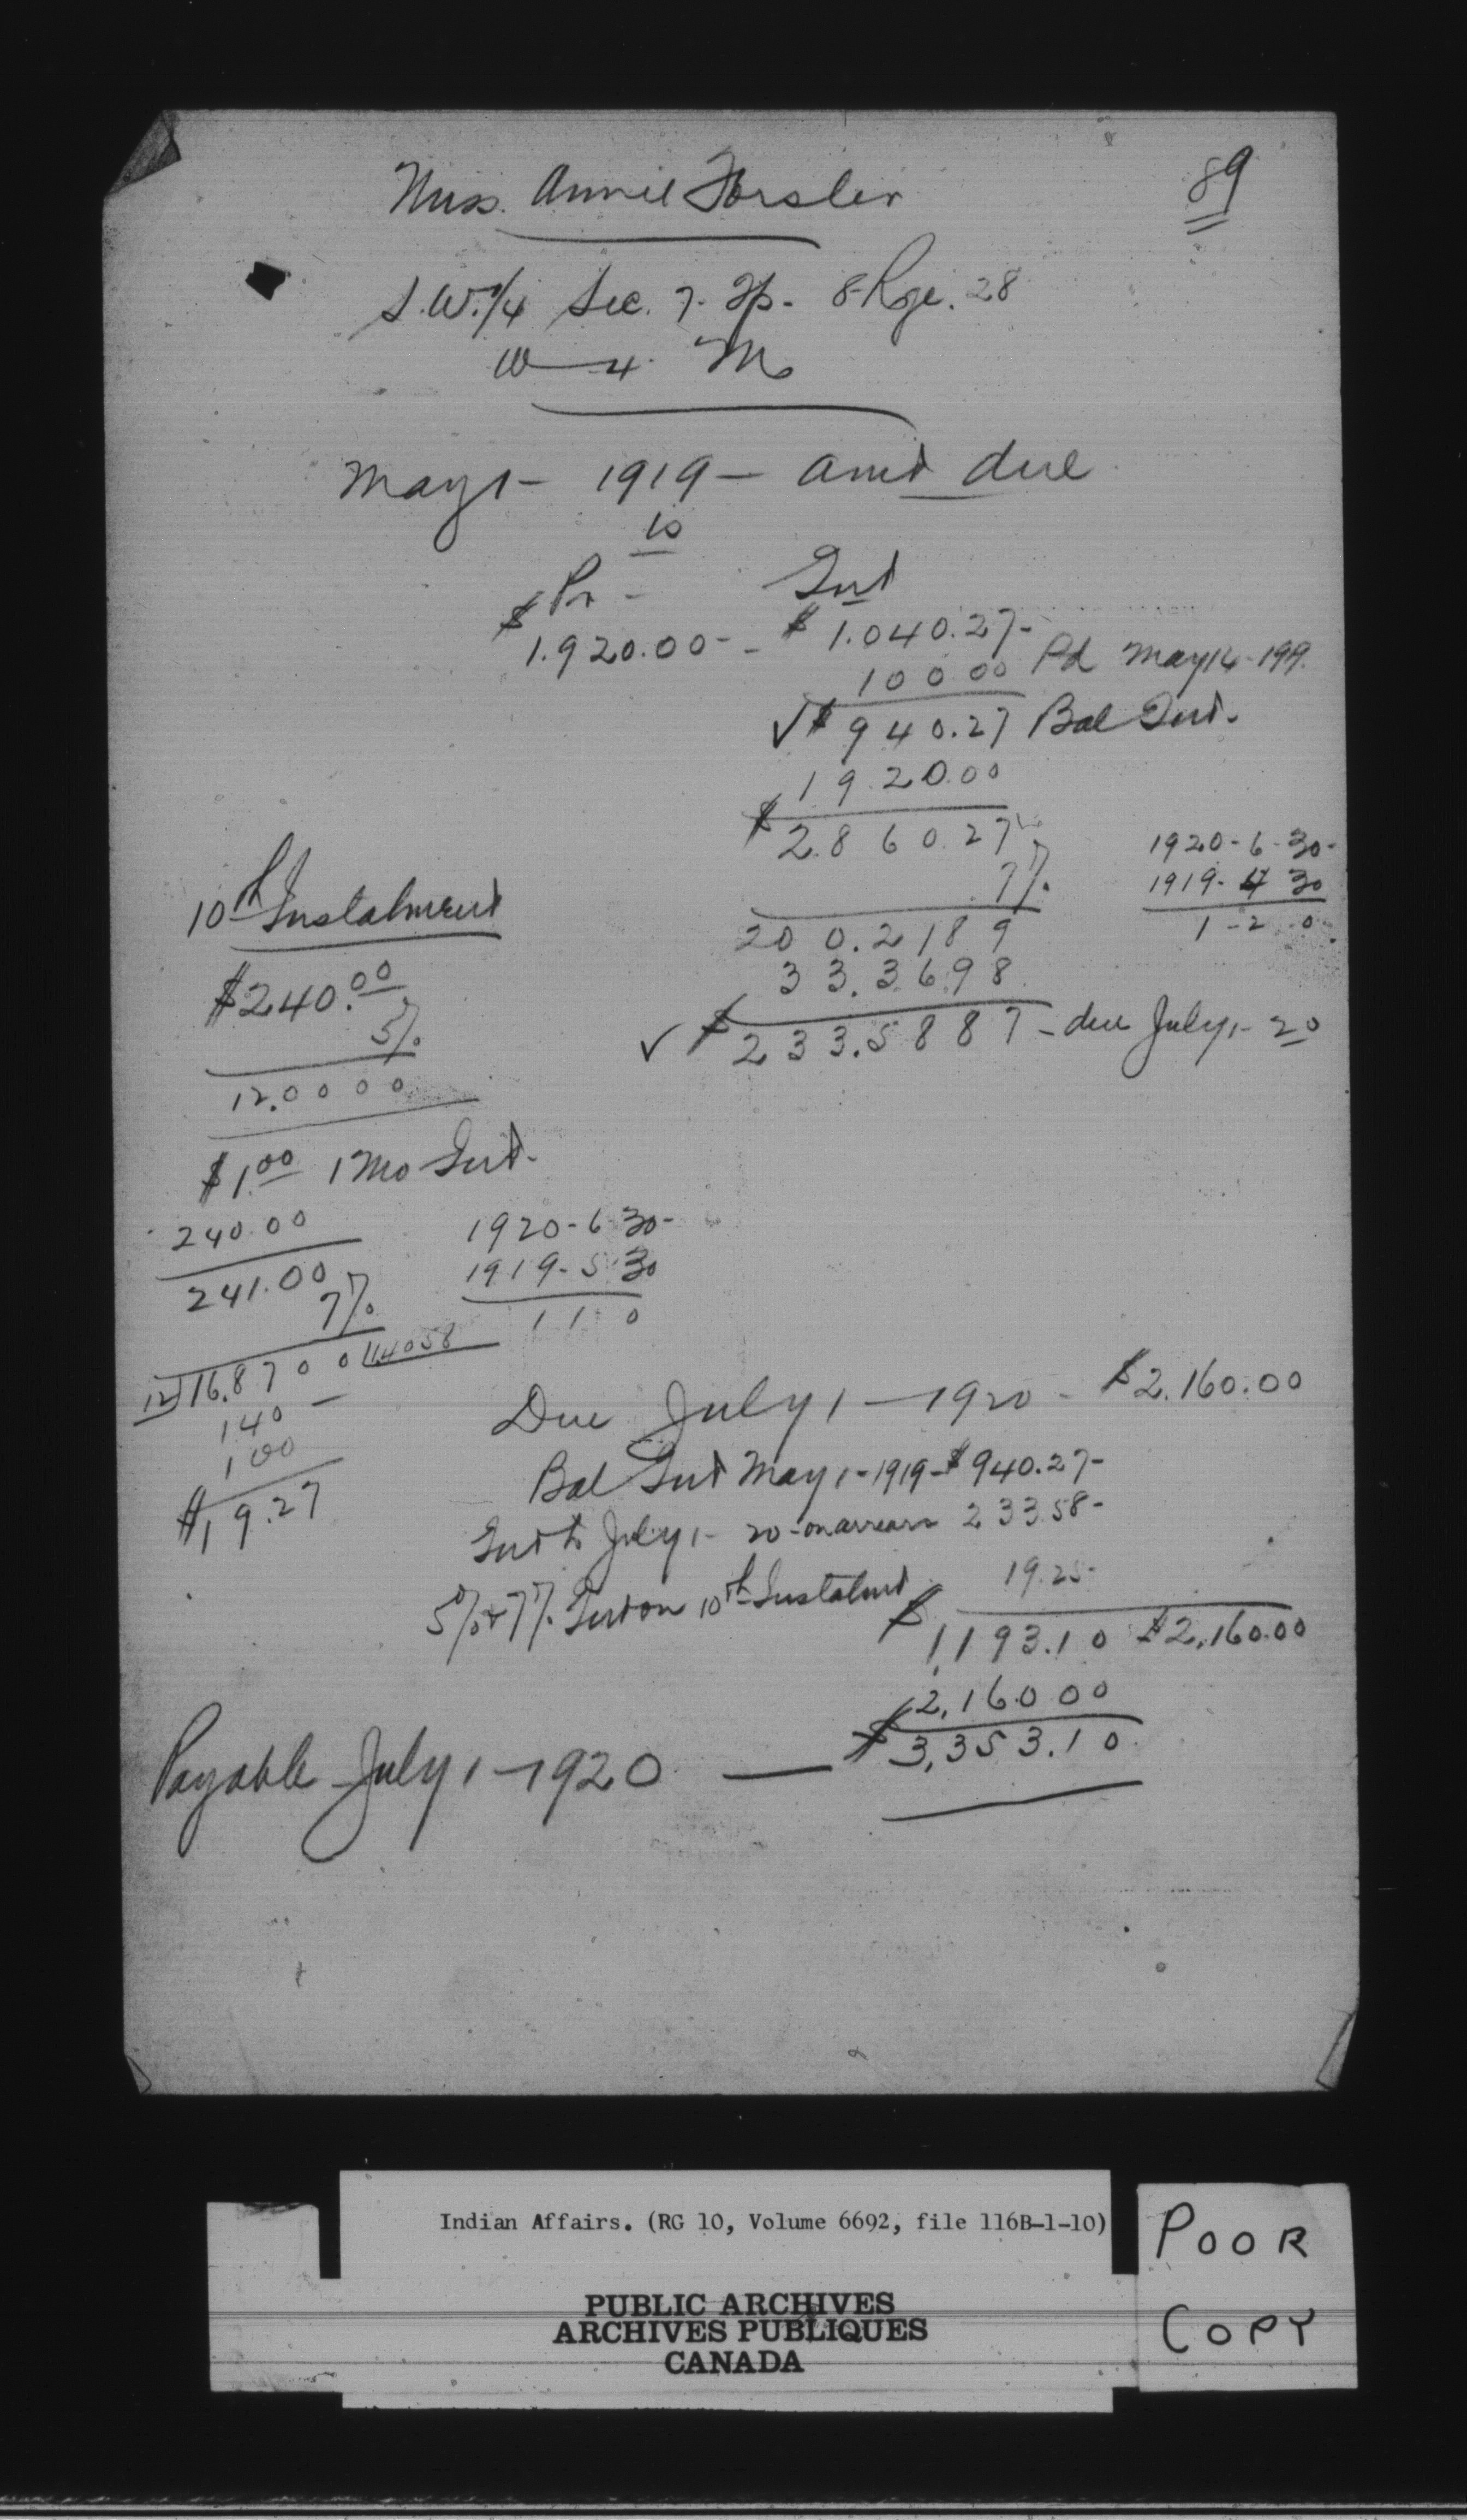 89
Miss. Annie Forsler
S.W. 1/4 Sec. 7. Tp- 8-Rge. 28
W-4. M
May 1- 1919- amt due
is
$ Pr - Int
1.920.00- - $ 1.040.27-
100 00 Pd May 14-1919.
✓ $ 940.27 Bal Int.
1920.00
$ 2.860.27
7%
200.2189
33.3698
✓ $ 233.5887- due July 1- 20
1920-6-30-
1919-4 30
1-2 0
10th Instalment
$240.00
5%
12.0000
$1.00 1 Mo Int.
240.00
241.00
7%
12)16.8700 1.4058
1.40
1.00
$19.27
1920-6 30-
1919-5 30
1 1 0
Due July 1-1920 - $2.160.00
Bal Int May 1-1919-$940.27-
Int to July 1- 20-on arrears 233.58-
5% + 7% Int on 10th Instalmt 19.25-
$1,193.10 $2,160.00
2,160.00
Payable July 1-1920 — $3,353.10
Indian Affairs. (RG 10, Volume 6692, file 116B-1-10)
PUBLIC ARCHIVES
ARCHIVES PUBLIQUES
CANADA
POOR
COPY